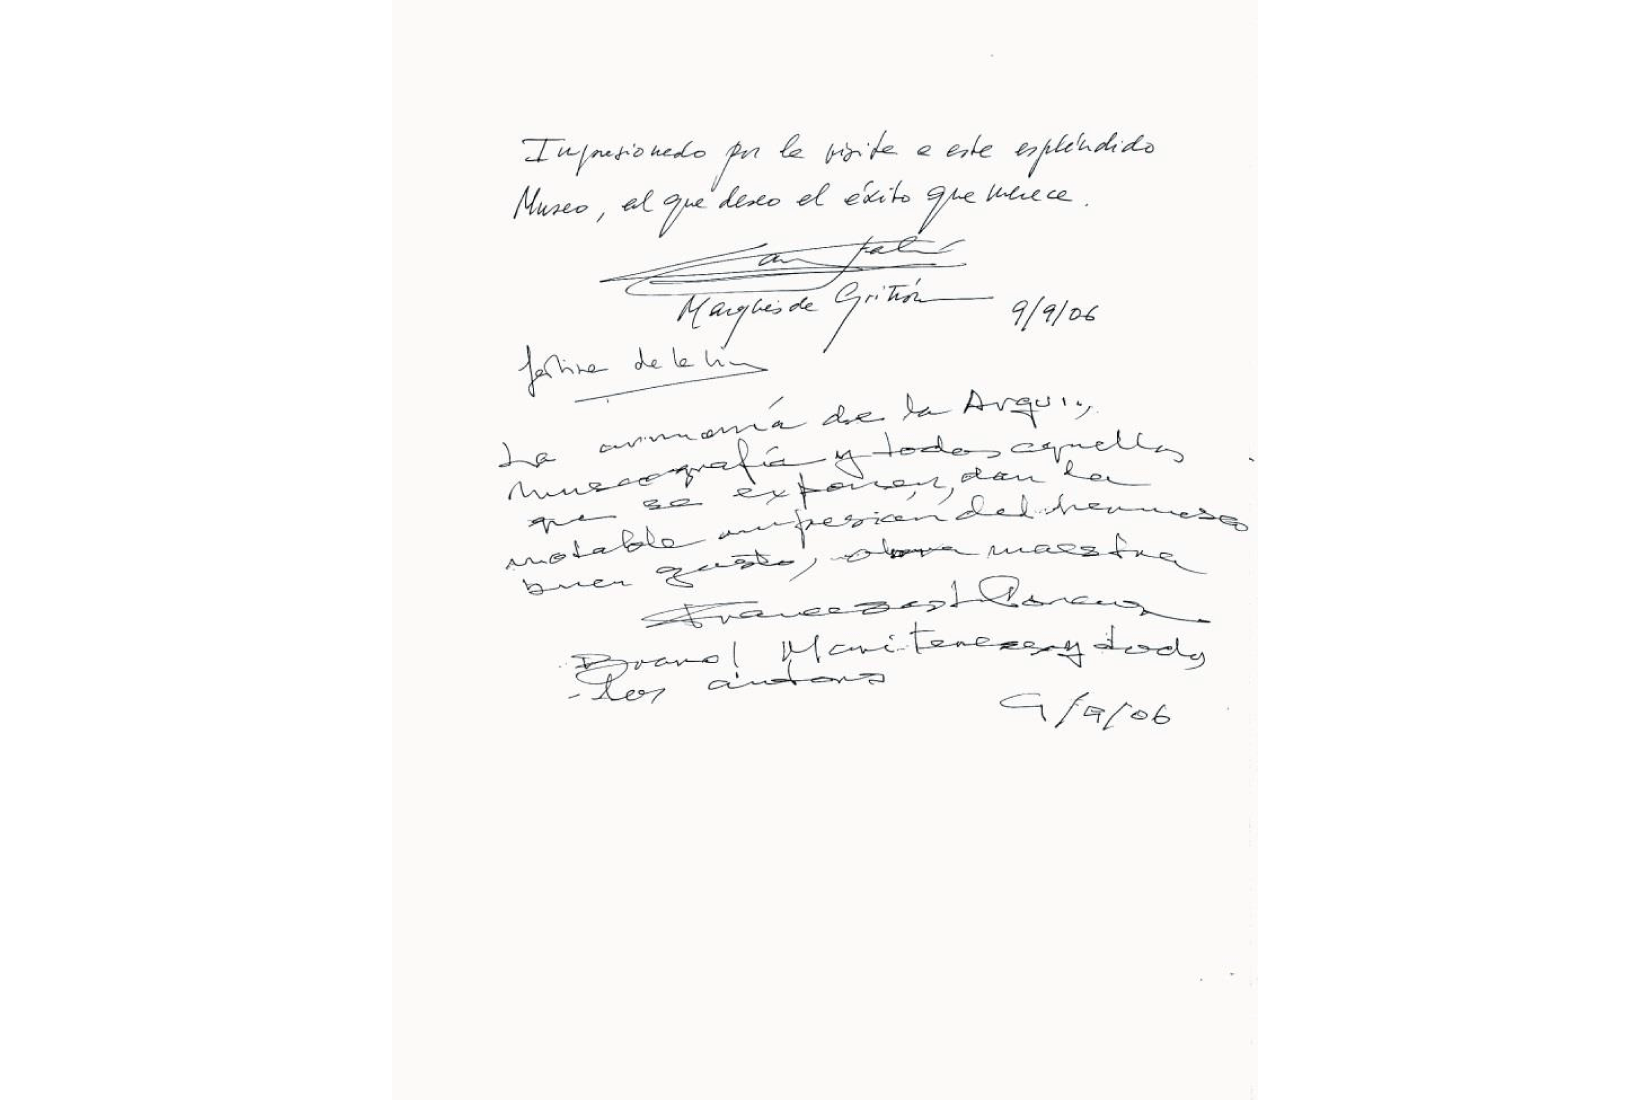 Impresionado por la visita a este espléndido
Museo, al que deseo el éxito que merece.
Marqués de Griñón 9/9/06
de la
La armonía de la Arqui.,
museografía y todos aquellos
que se exponen, dan la
notable impresión del hermoso
buen gusto, obra maestra
Bravo! Mari Tere y todos
los autores
9/9/06